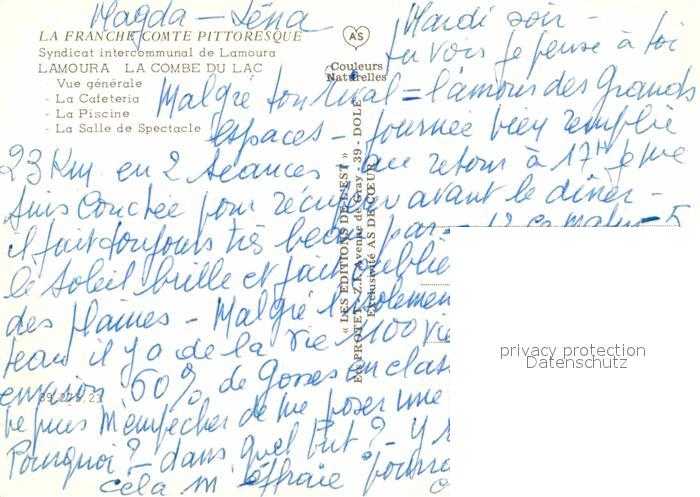 Magda - Léna
Mardi soir -
LA FRANCHE COMTE PITTORESQUE
Syndicat intercommunal de Lamoura
LAMOURA LA COMBE DU LAC
- Vue générale
- La Cafeteria
- La Piscine
- La Salle de Spectacle
AS
Couleurs
Naturelles
tu vois je pense à toi
Malgré ton rival = l'amour des grands
espaces - journée bien remplie
23 Km en 2 séances au retour à 17H je me
suis couchée pour récupérer avant le dîner -
il fait toujours très beau par - 12 ce matin - 5
le soleil brille et fait oublie
des plaines - Malgré l'isolemen
teau il y a de la vie 1100 vie
environ 60% de gosses en clas
je puis m'empêcher de me poser une
Pourquoi? - dans quel but? - y
cela m'effraie
« LES EDITIONS DE L'EST »
Ets PROTET - Z.I. Avenue de Gray - 39 - DOLE
Exclusivité AS DE CŒUR
privacy protection
Datenschutz